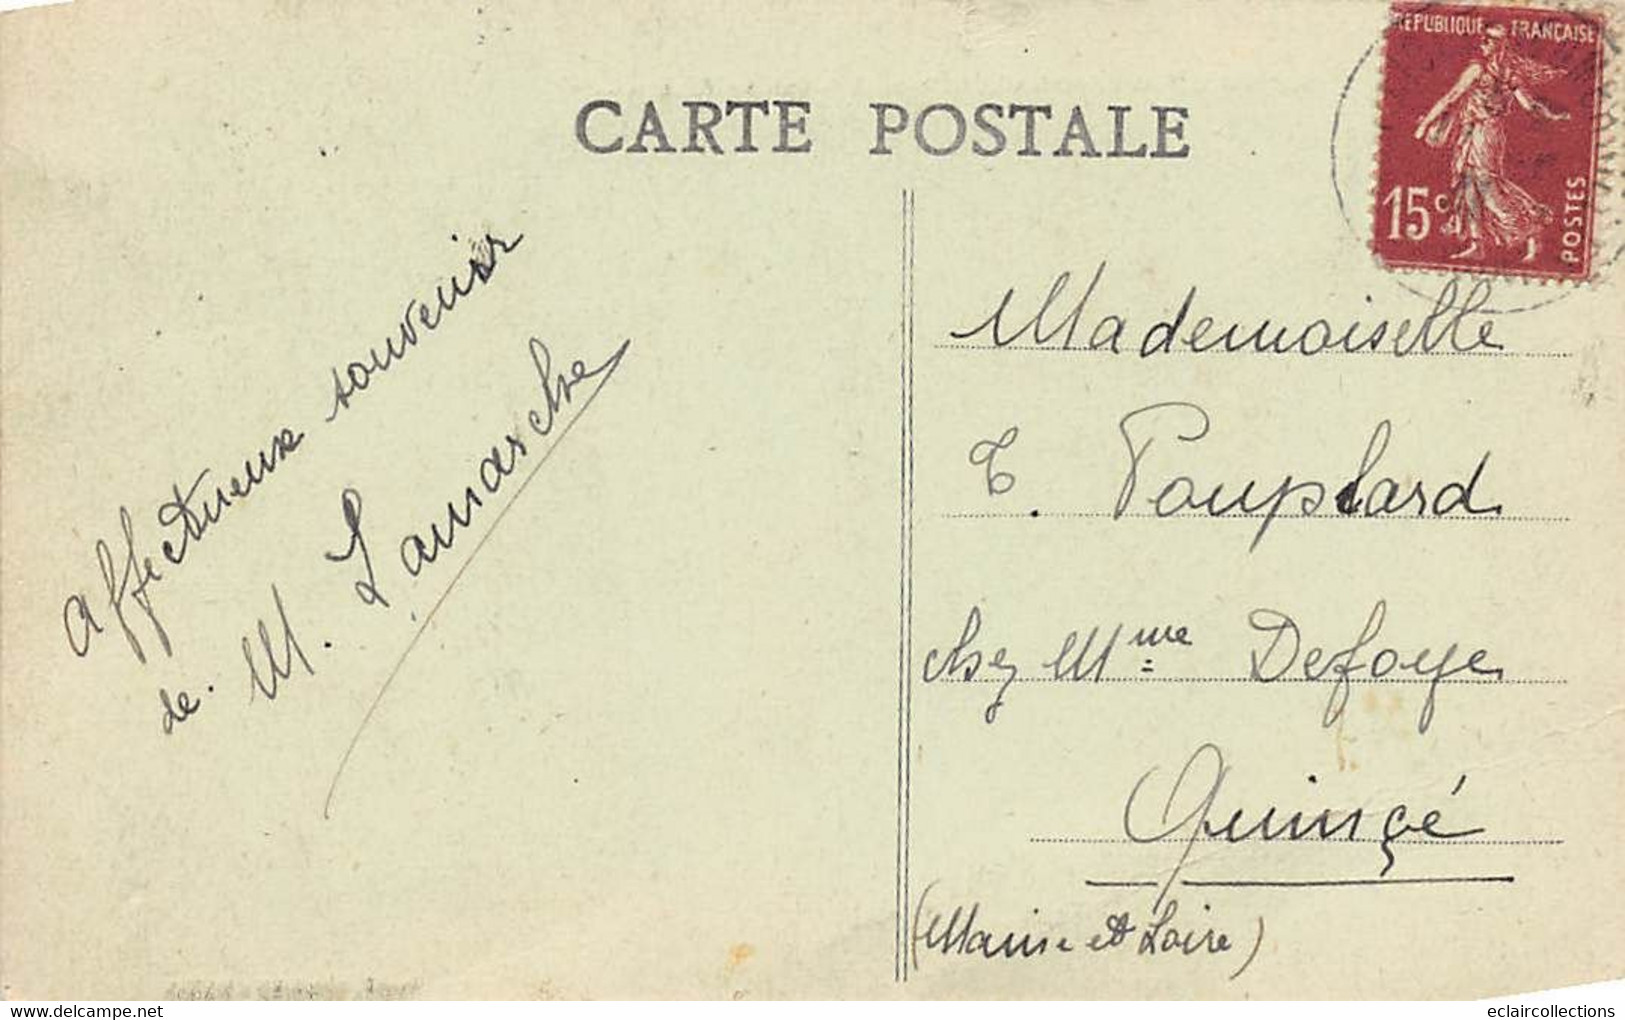 CARTE POSTALE
RÉPUBLIQUE FRANÇAISE
15c
POSTES
affectueux souvenir
de M. Lamarche
Mademoiselle
T. Pouplard
chez Mme Defoye
Quinçé
(Maine et Loire)
eclaircollections